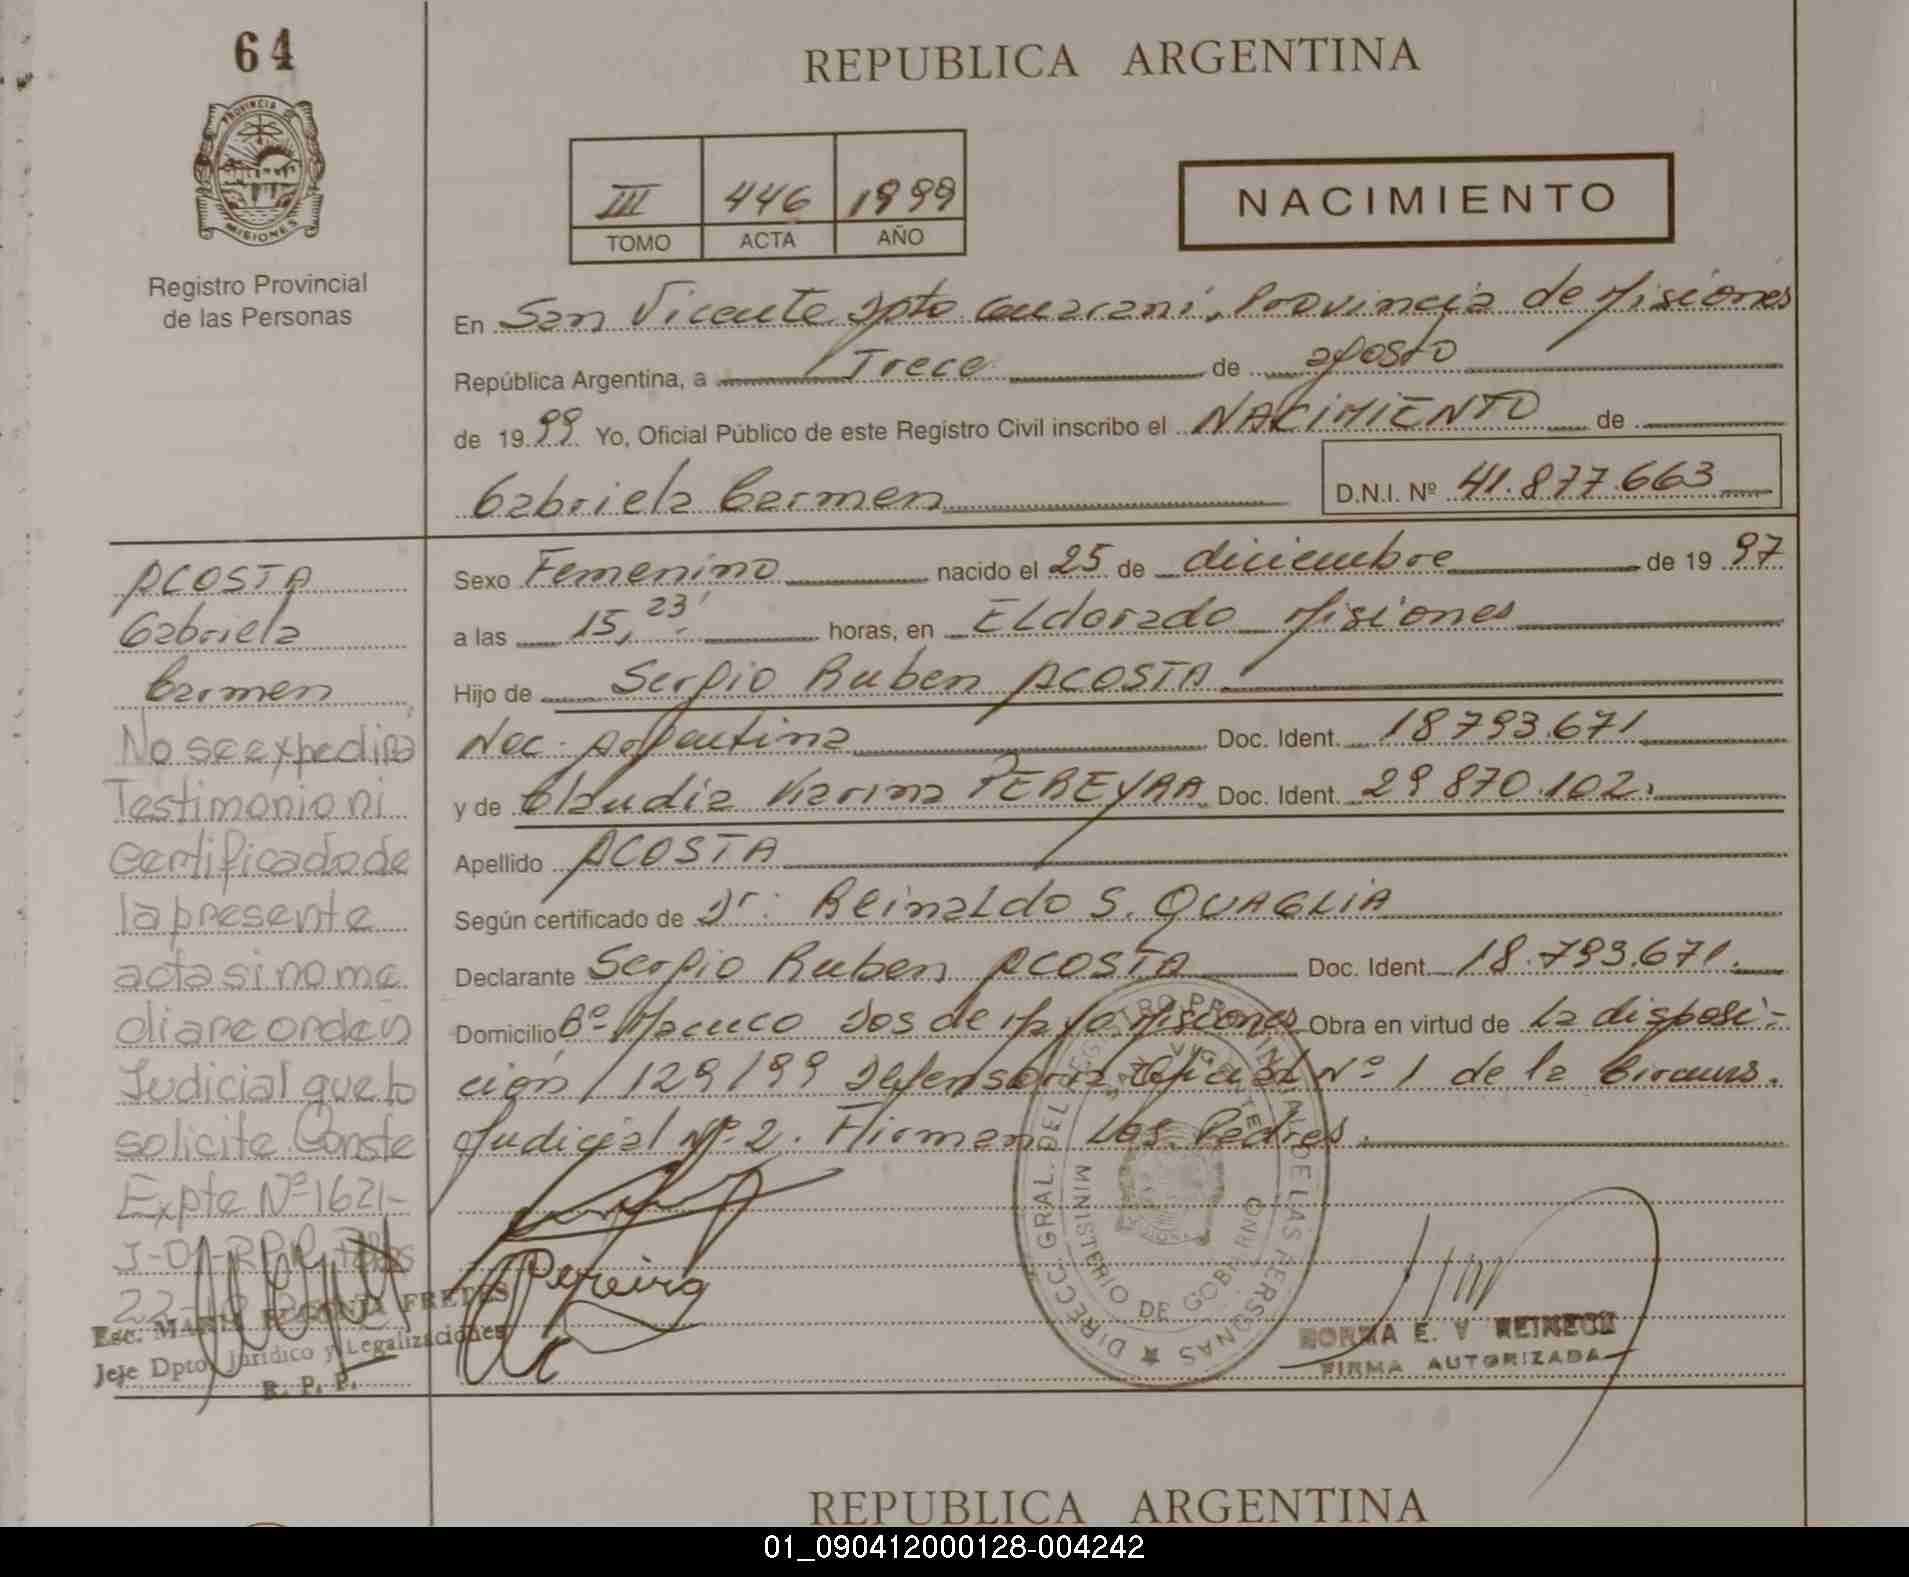 64
PROVINCIA DE
MISIONES
Registro Provincial
de las Personas
REPUBLICA ARGENTINA
III 446 1999
TOMO ACTA AÑO
NACIMIENTO
En San Vicente Dpto Guaraní, Provincia de Misiones
República Argentina, a Trece de agosto
de 1999 Yo, Oficial Público de este Registro Civil inscribo el NACIMIENTO de
Gabriela Carmen D.N.I. Nº 41.877.663
Sexo Femenino nacido el 25 de diciembre de 1997
a las 15,23' horas, en ELdorado Misiones
Hijo de Sergio Ruben ACOSTA
Nac. Argentina Doc. Ident. 18793.671
y de Claudia Karina PEREYRA Doc. Ident. 29 870.102.
Apellido ACOSTA
Según certificado de Dr: Reinaldo S. QUAGLIA
Declarante Sergio Ruben ACOSTA Doc. Ident. 18.793.671.
Domicilio Bº Macuco Dos de Mayo Misiones Obra en virtud de la disposi-
ción 129/99 Defensoria Oficial Nº 1 de la Circuns.
Judicial Nº 2. Firman Los Padres.
ACOSTA
Gabriela
Carmen
No se expedira
Testimonio ni
Certificado de
la presente
acta si no me
diare orden
Judicial que lo
solicite. Conste
Expte Nº 1621-
Esc. FRETES
Jefe Dpto. Jurídico y Legalizaciones
R. P. P.
Pereira
DIRECC. GRAL. DEL REGISTRO PROVINCIAL DE LAS PERSONAS
MINISTERIO DE GOBIERNO
SAN VICENTE
NORMA E. V REINECK
FIRMA AUTORIZADA
REPUBLICA ARGENTINA
01_090412000128-004242